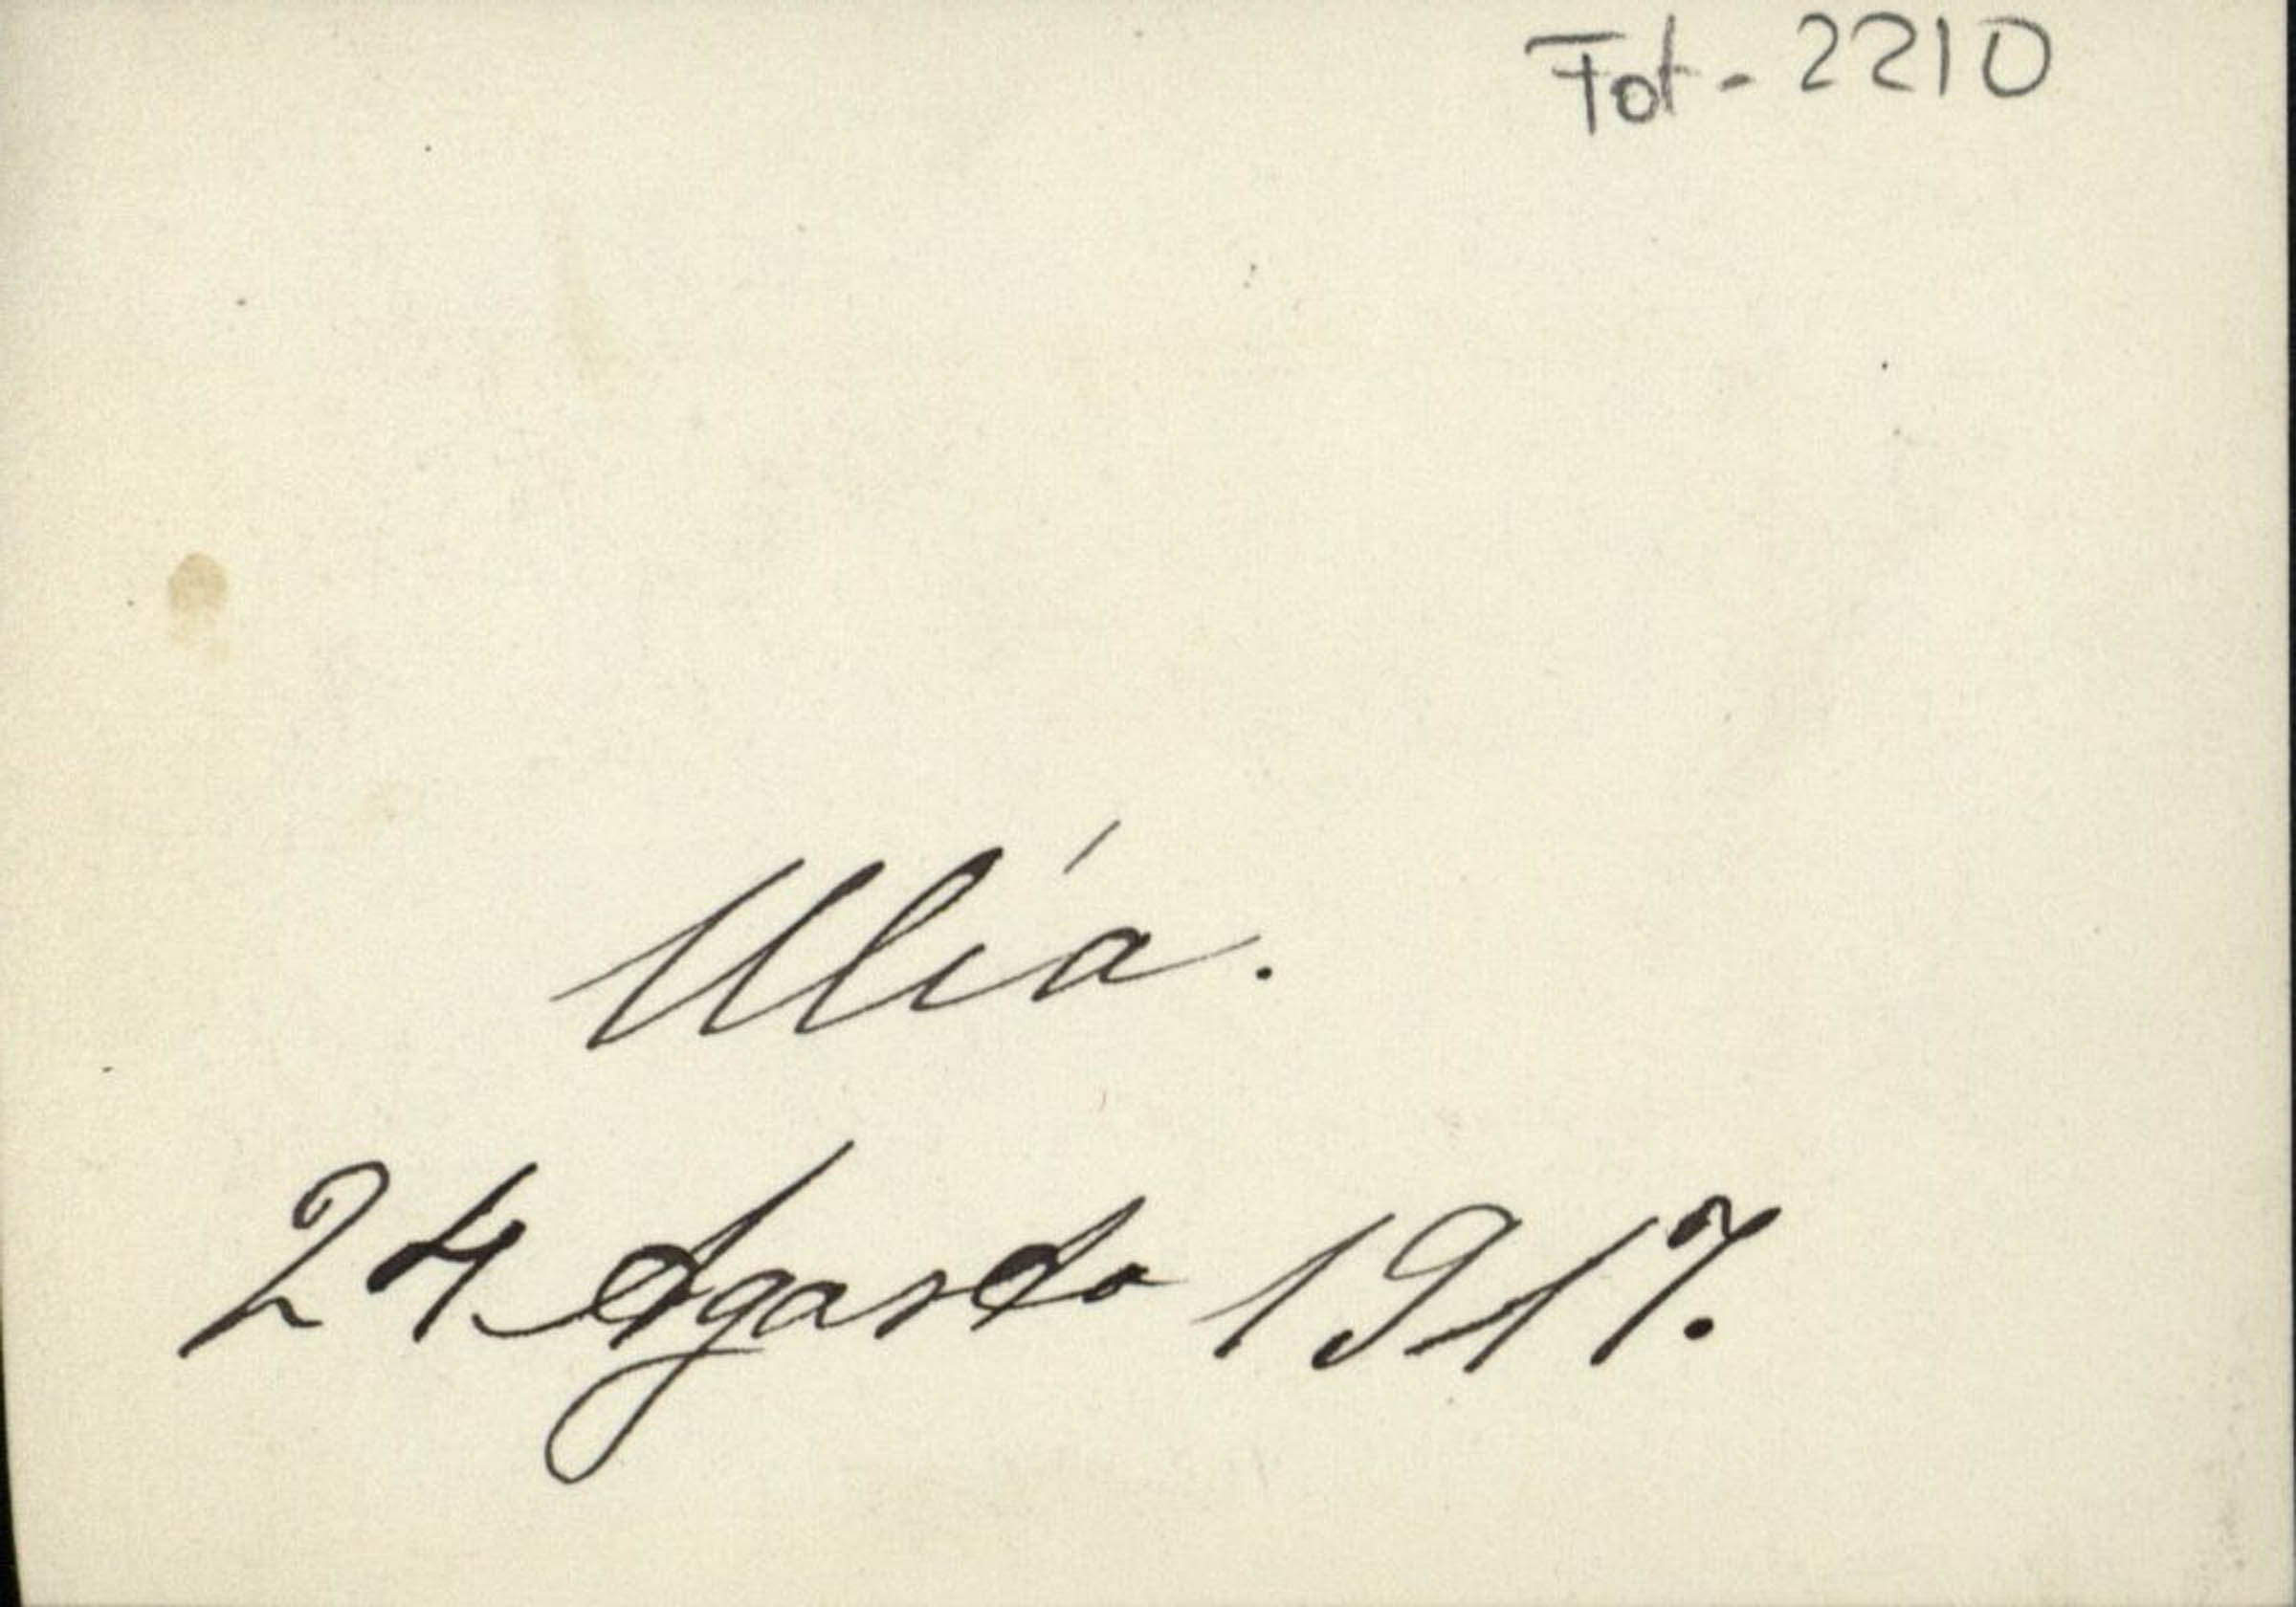 Fot-2210
Ulía.
24 Agosto 1917.